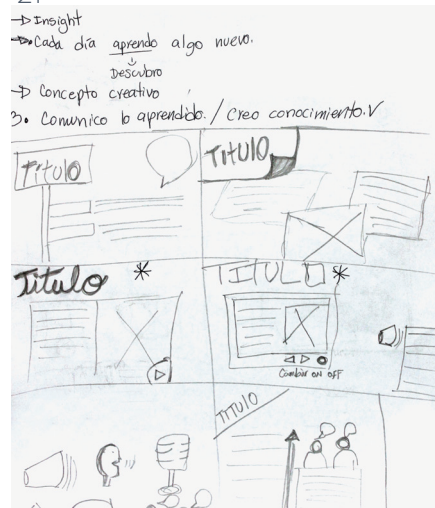 → Insight
→ Cada día aprendo algo nuevo.
Descubro
→ Concepto creativo
3. Comunico lo aprendido. / Creo conocimiento. √
Titulo
TITULO
Titulo *
TITULO *
Cambiar ON OFF
TITULO